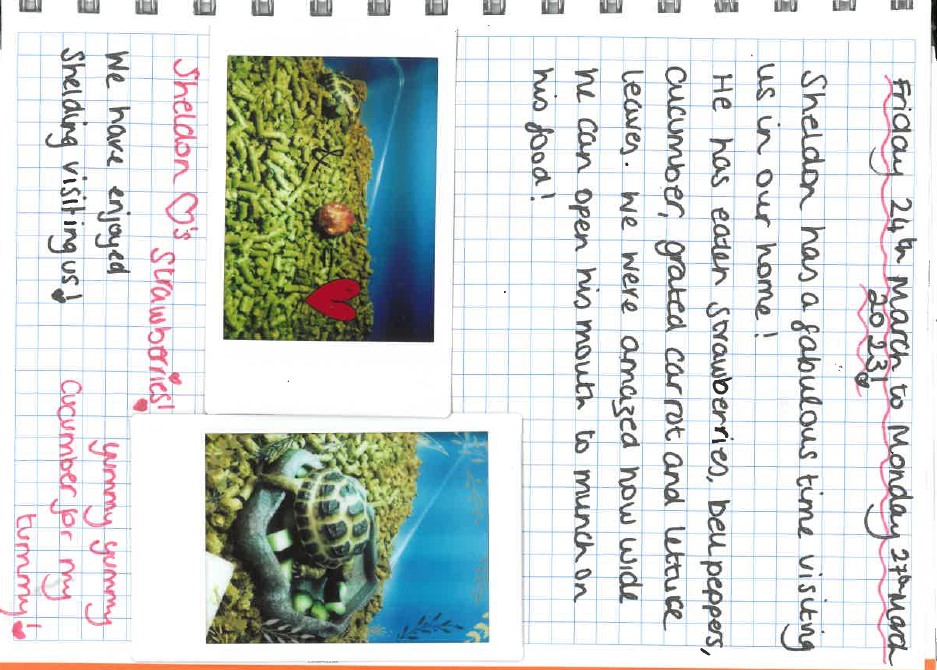 Friday 24th March to Monday 27th March
2023!
Sheldon has a fabulous time visiting
us in our home!
He has eaten strawberries, bell peppers,
cucumber, grated carrot and lettuce
leaves. We were amazed how wide
he can open his mouth to munch on
his food!
Sheldon ♡'s strawberries!
We have enjoyed
Shelding visiting us!
yummy yummy
cucumber for my
tummy!